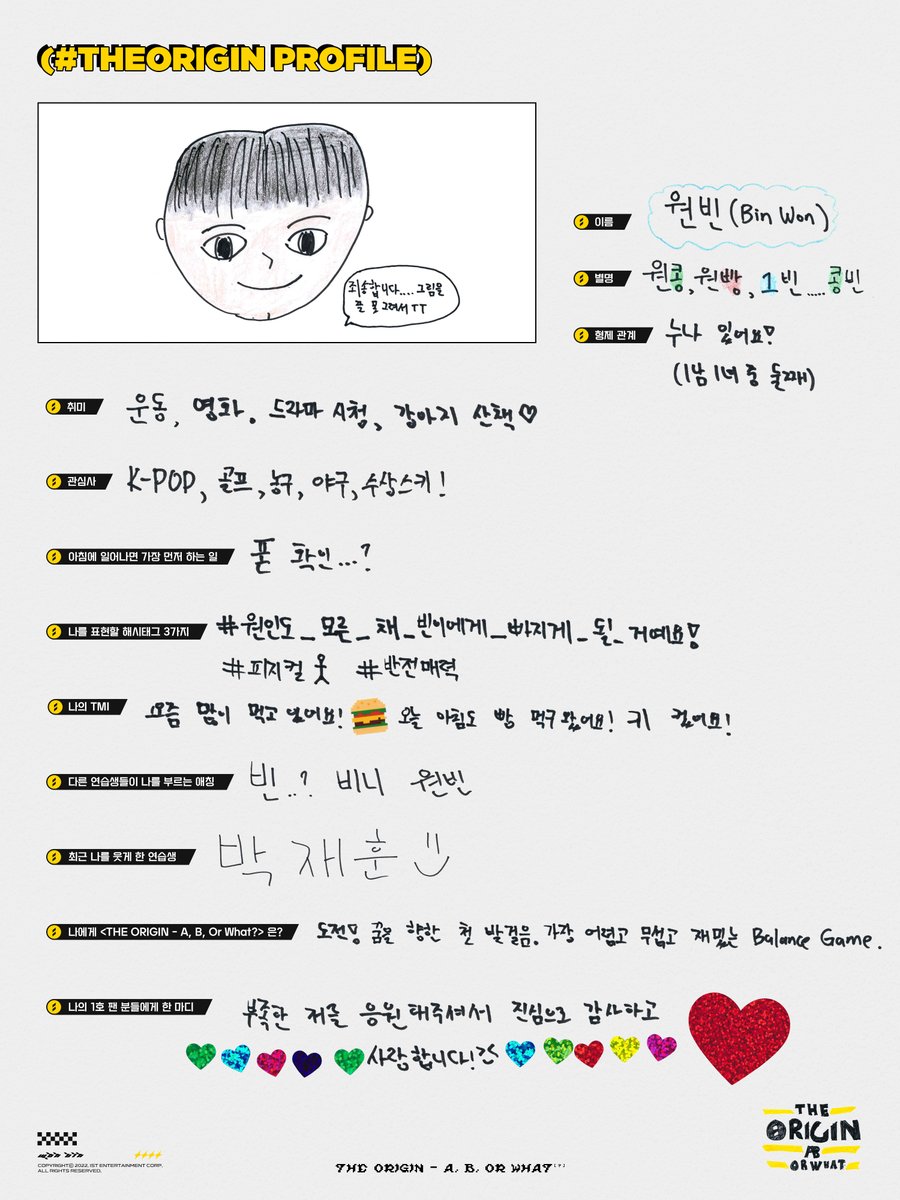 (#THEORIGIN PROFILE)
죄송합니다.... 그림을
잘 못 그려서 ㅠㅠ
이름 원빈 (Bin Won)
별명 원콩, 원빵, 1빈 ..... 콩빈
형제 관계 누나 있어요!
(1남 1녀 중 둘째)
취미 운동, 영화. 드라마 시청, 강아지 산책♡
관심사 K-POP, 골프, 농구, 야구, 수상스키!
아침에 일어나면 가장 먼저 하는 일 폰 확인...?
나를 표현할 해시태그 3가지 #원인도_모른_채_빈이에게_빠지게_될_거예요!
#피지컬 #반전매력
나의 TMI 요즘 많이 먹고 있어요! 오늘 아침도 빵 먹구 왔어요! 키 컸어요!
다른 연습생들이 나를 부르는 애칭 빈..? 비니 원빈
최근 나를 웃게 한 연습생 박재훈
나에게 <THE ORIGIN - A, B, Or What?> 은? 도전! 꿈을 향한 첫 발걸음. 가장 어렵고 무섭고 재밌는 Balance Game.
나의 1호 팬 분들에게 한 마디 부족한 저를 응원해주셔서 진심으로 감사하고
사랑합니다!
THE ORIGIN AB OR WHAT
COPYRIGHTⓒ 2022. IST ENTERTAINMENT CORP.
ALL RIGHTS RESERVED.
THE ORIGIN - A, B, OR WHAT[?]